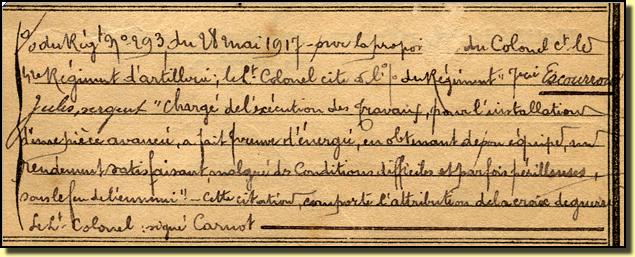 o/o du Régt N° 293 du 28 mai 1917 - sur la propon du Colonel Ct le
Régiment d'artillerie; le Lt Colonel cite à l'o/o du Régiment "
Jules, sergent " Chargé de l'exécution des Travaux, pour l'installation
d'une pièce avancée, a fait preuve d'énergie, en obtenant de son équipe, un
rendement satisfaisant malgré ds Conditions difficiles et parfois périlleuses,
sous le feu de l'ennemi " - Cette citation, comporte l'attribution de la croix de guerre
Le Lt Colonel : signé Carnot